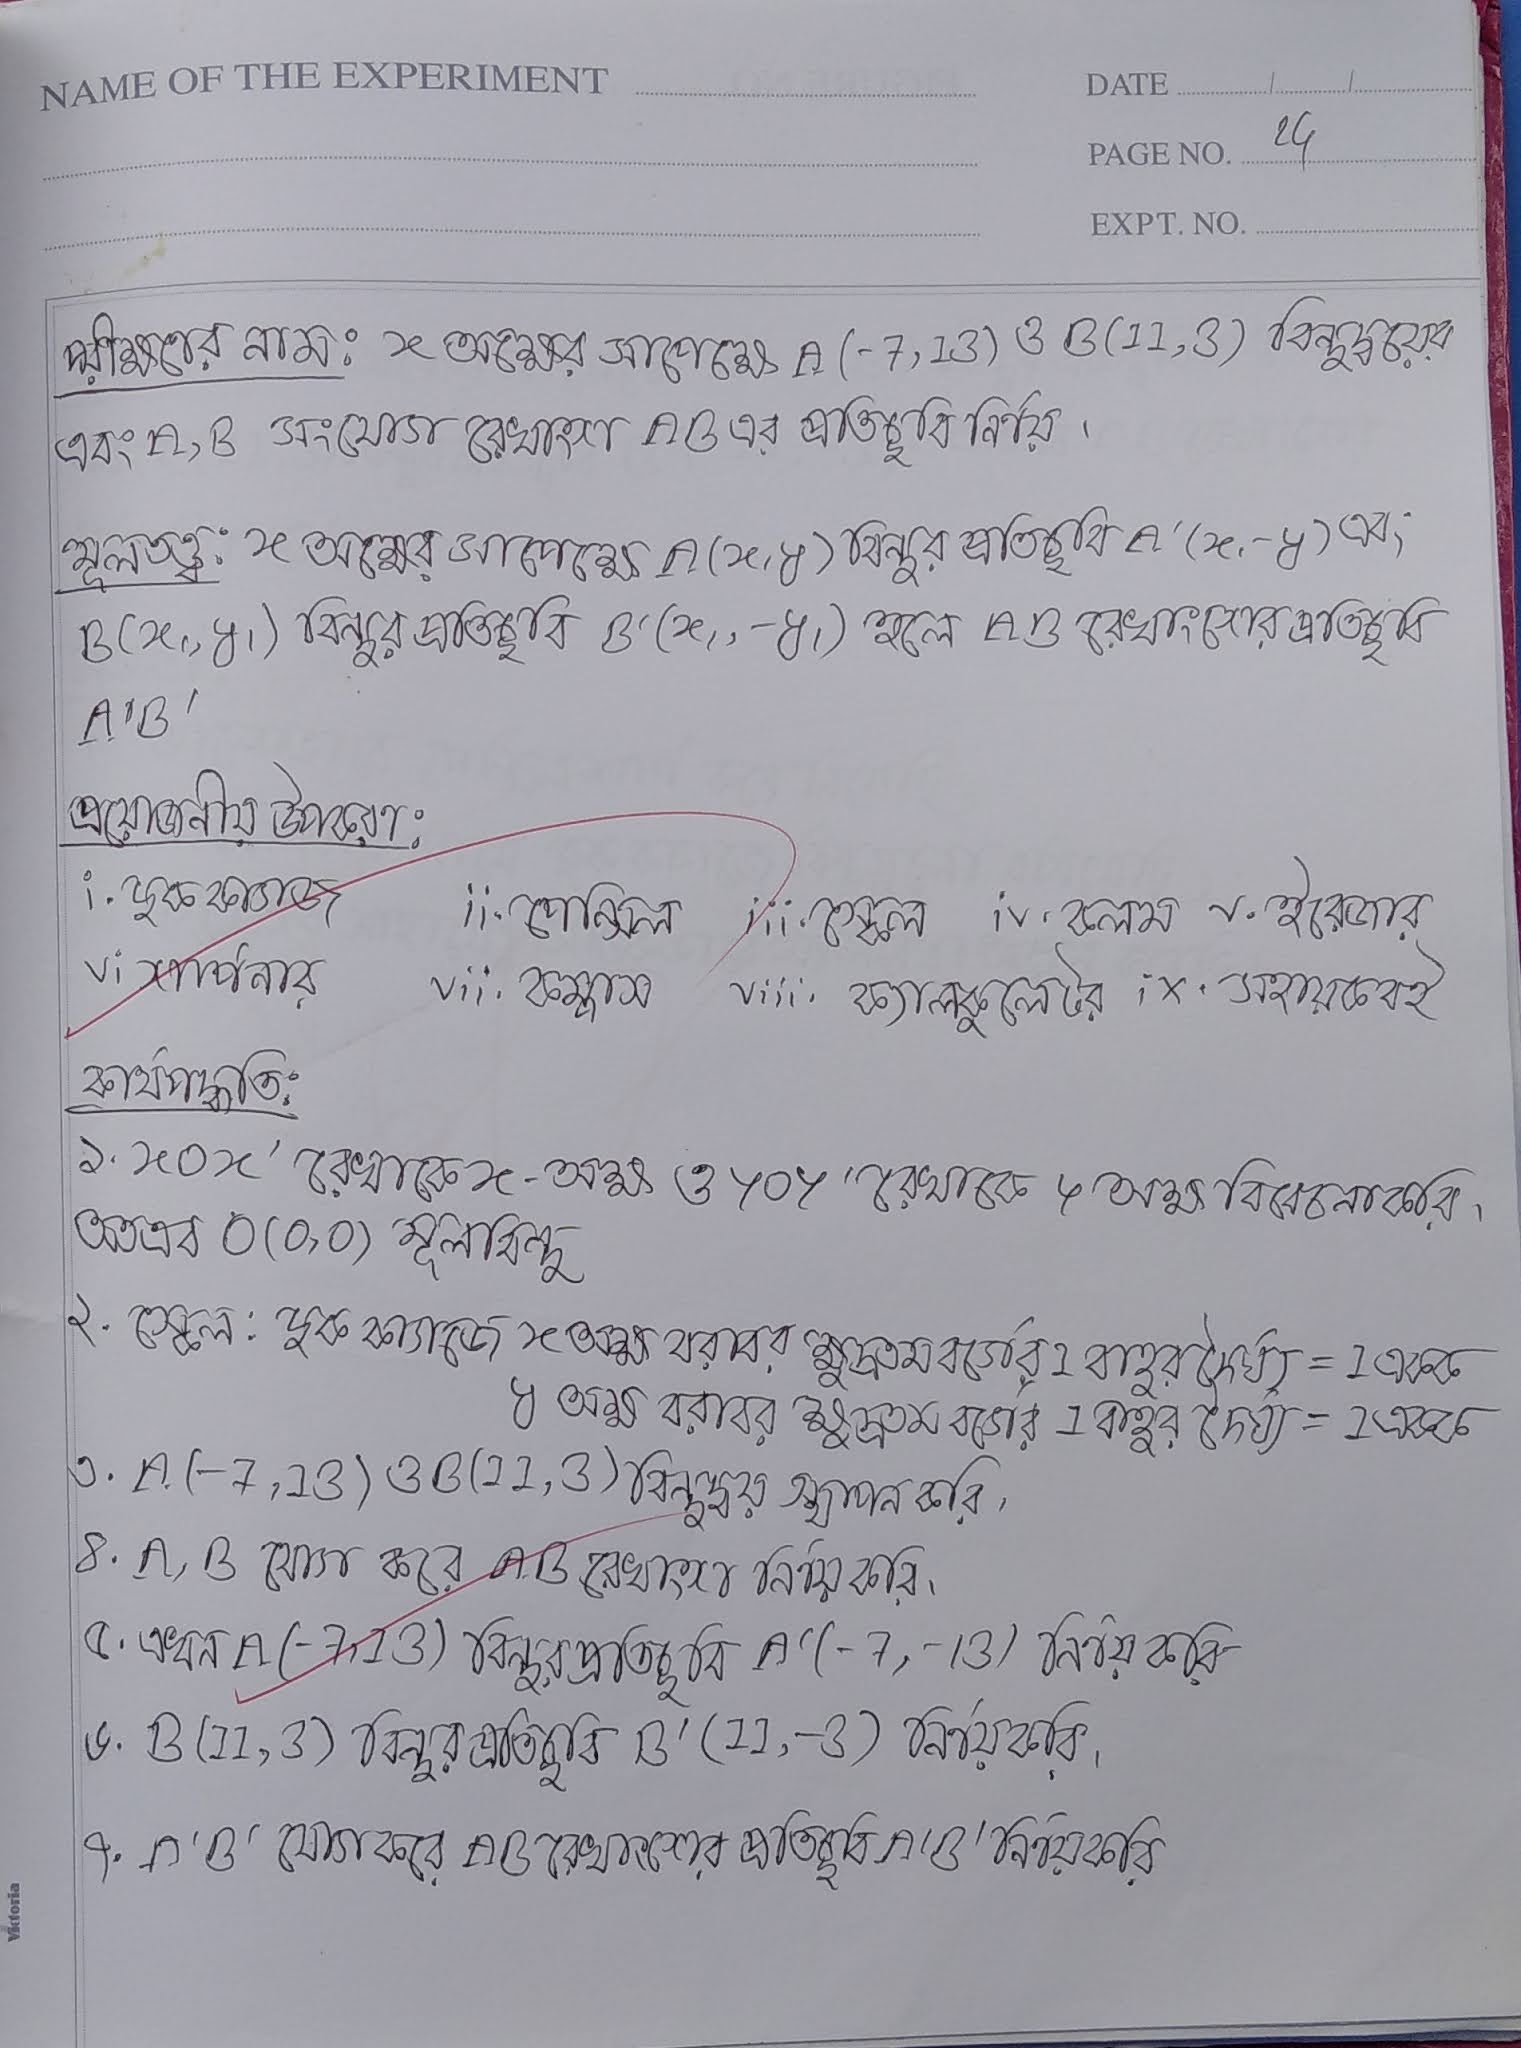 NAME OF THE EXPERIMENT
DATE / /
PAGE NO. 24
EXPT. NO.
পরীক্ষণের নাম: x অক্ষের সাপেক্ষে A (-7, 13) ও B(11, 3) বিন্দুদ্বয়ের
এবং A, B সংযোগ রেখাংশ AB এর প্রতিচ্ছবি নির্ণয়।
মূলতত্ত্ব: x অক্ষের সাপেক্ষে A(x, y) বিন্দুর প্রতিচ্ছবি A'(x, -y) এবং
B(x₁, y₁) বিন্দুর প্রতিচ্ছবি B'(x₁, -y₁) হলে AB রেখাংশের প্রতিচ্ছবি
A'B'
প্রয়োজনীয় উপকরণ:
i. ছক কাগজ ii. পেন্সিল iii. স্কেল iv. কলম v. ইরেজার
vi শার্পনার vii. কম্পাস viii. ক্যালকুলেটর ix. সহায়ক বই
কার্যপদ্ধতি:
১. xox' রেখাকে x-অক্ষ ও yoy' রেখাকে y অক্ষ বিবেচনা করি।
অতএব O(0,0) মূলবিন্দু
২. স্কেল: ছক কাগজে x অক্ষ বরাবর ক্ষুদ্রতম বর্গের 1 বাহুর দৈর্ঘ্য = 1 একক
y অক্ষ বরাবর ক্ষুদ্রতম বর্গের 1 বাহুর দৈর্ঘ্য = 1 একক
৩. A (-7, 13) ও B(11, 3) বিন্দুদ্বয় স্থাপন করি।
৪. A, B যোগ করে AB রেখাংশ নির্ণয় করি।
৫. এখন A (-7, 13) বিন্দুর প্রতিচ্ছবি A'(-7, -13) নির্ণয় করি
৬. B (11, 3) বিন্দুর প্রতিচ্ছবি B' (11, -3) নির্ণয় করি।
৭. A'B' যোগ করে AB রেখাংশের প্রতিচ্ছবি A'B' নির্ণয় করি
Viktoria